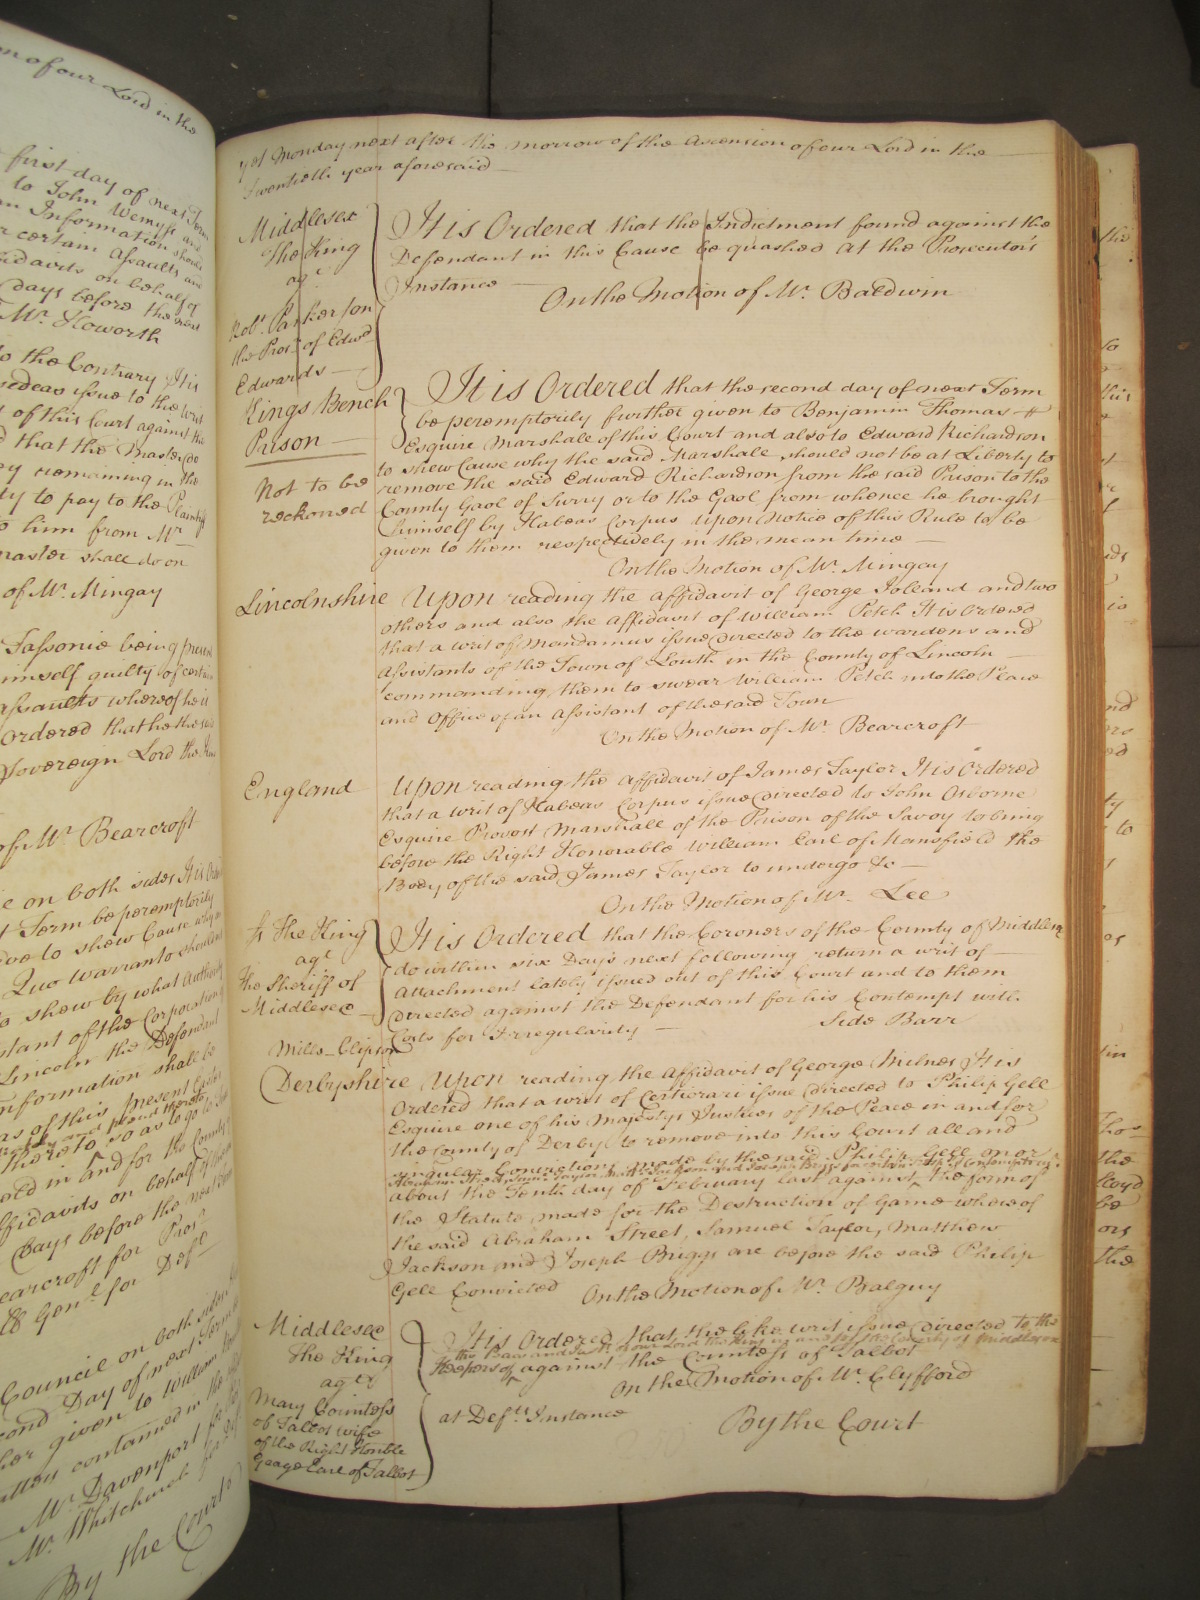 on of our Lord in the
first day of next Term
to John Wemyss and
an Information should
certain assaults and
davits on behalf of
days before the next
Mr. Howorth
to the Contrary It is
sedeas issue to the writ
of this Court against the
that the Master do
ey remaining in the
ty to pay to the Plaintiff
him from Mr
master shall do on
of Mr. Mingay
Sassonie being present
imself guilty of certain
assaults whereof he is
Ordered that he the said
Sovereign Lord the King
of Mr. Bearcroft
e on both sides It is Ordered
t Term be peremptorily
to shew Cause why an
Quo Warranto should
shew by what Authority
stant of the Corporation
Lincoln the Defendant
nformation shall be
as of this present Easter
thereto so as to go to
in and for the County
ffidavits on behalf of
Days before the next
earcroft for Prosr.
Genl. for Deft.
Council on both sides
cond Day of next Term
her given to William
atters contained in the
Mr. Davenport for
Mr. Whitchurch for
By the Court
yet Monday next after the morrow of the Ascension of our Lord in the
twentieth year aforesaid
Middlesex
The King
agt.
Robt. Parkerson
the Prosn. of Edwd.
Edwards
It is Ordered that the Indictment found against the
Defendant in this Cause be quashed at the Prosecutor's
Instance
On the Motion of Mr. Baldwin
Kings Bench
Prison
Not to be
reckoned
It is Ordered that the second day of next Term
be peremptorily further given to Benjamin Thomas
Esquire Marshall of this Court and also to Edward Richardson
to shew Cause why the said Marshall should not be at Liberty to
remove the said Edward Richardson from the said Prison to the
County Gaol of Surry or to the Gaol from whence he brought
himself by Habeas Corpus upon Notice of this Rule to be
given to them respectively in the mean time
On the Motion of Mr. Mingay
Lincolnshire Upon reading the Affidavit of George Jolland and two
others and also the Affidavit of William Petch It is Ordered
that a writ of Mandamus issue Directed to the wardens and
Assistants of the Town of Louth in the County of Lincoln
commanding them to swear William Petch into the Place
and Office of an Assistant of the said Town
On the Motion of Mr. Bearcroft
England Upon reading the Affidavit of James Taylor It is Ordered
that a writ of Habeas Corpus issue Directed to John Osborne
Esquire Provost Marshall of the Prison of the Savoy to bring
before the Right Honorable William Earl of Mansfield the
Body of the said James Taylor to undergo &c
On the Motion of Mr. Lee
The King
agt.
The Sheriff of
Middlesex
It is Ordered that the Coroners of the County of Middlesex
do within six Days next following return a writ of
Attachment lately issued out of this Court and to them
Directed against the Defendant for his Contempt with
Costs for Irregularity
Side Barr
Mills Clipson
Derbyshire Upon reading the Affidavit of George Milnes It is
Ordered that a writ of Certiorari issue Directed to Philip Gell
Esquire one of his Majestys Justices of the Peace in and for
the County of Derby to remove into this Court all and
singular Convictions made by the said Philip Gell on or
about the Tenth day of February last against the form of
the Statute made for the Destruction of Game whereof
the said Abraham Street, Samuel Taylor, Matthew
Jackson and Joseph Briggs are before the said Philip
Gell Convicted
On the Motion of Mr. Balguy
Middlesex
The King
agt.
Mary Countess
of Talbot wife
of the Right Honble
George Earl of Talbot
It is Ordered that the like writ issue Directed to the
against the Countess of Talbot
On the Motion of Mr. Clyfford
at Defts. Instance
By the Court